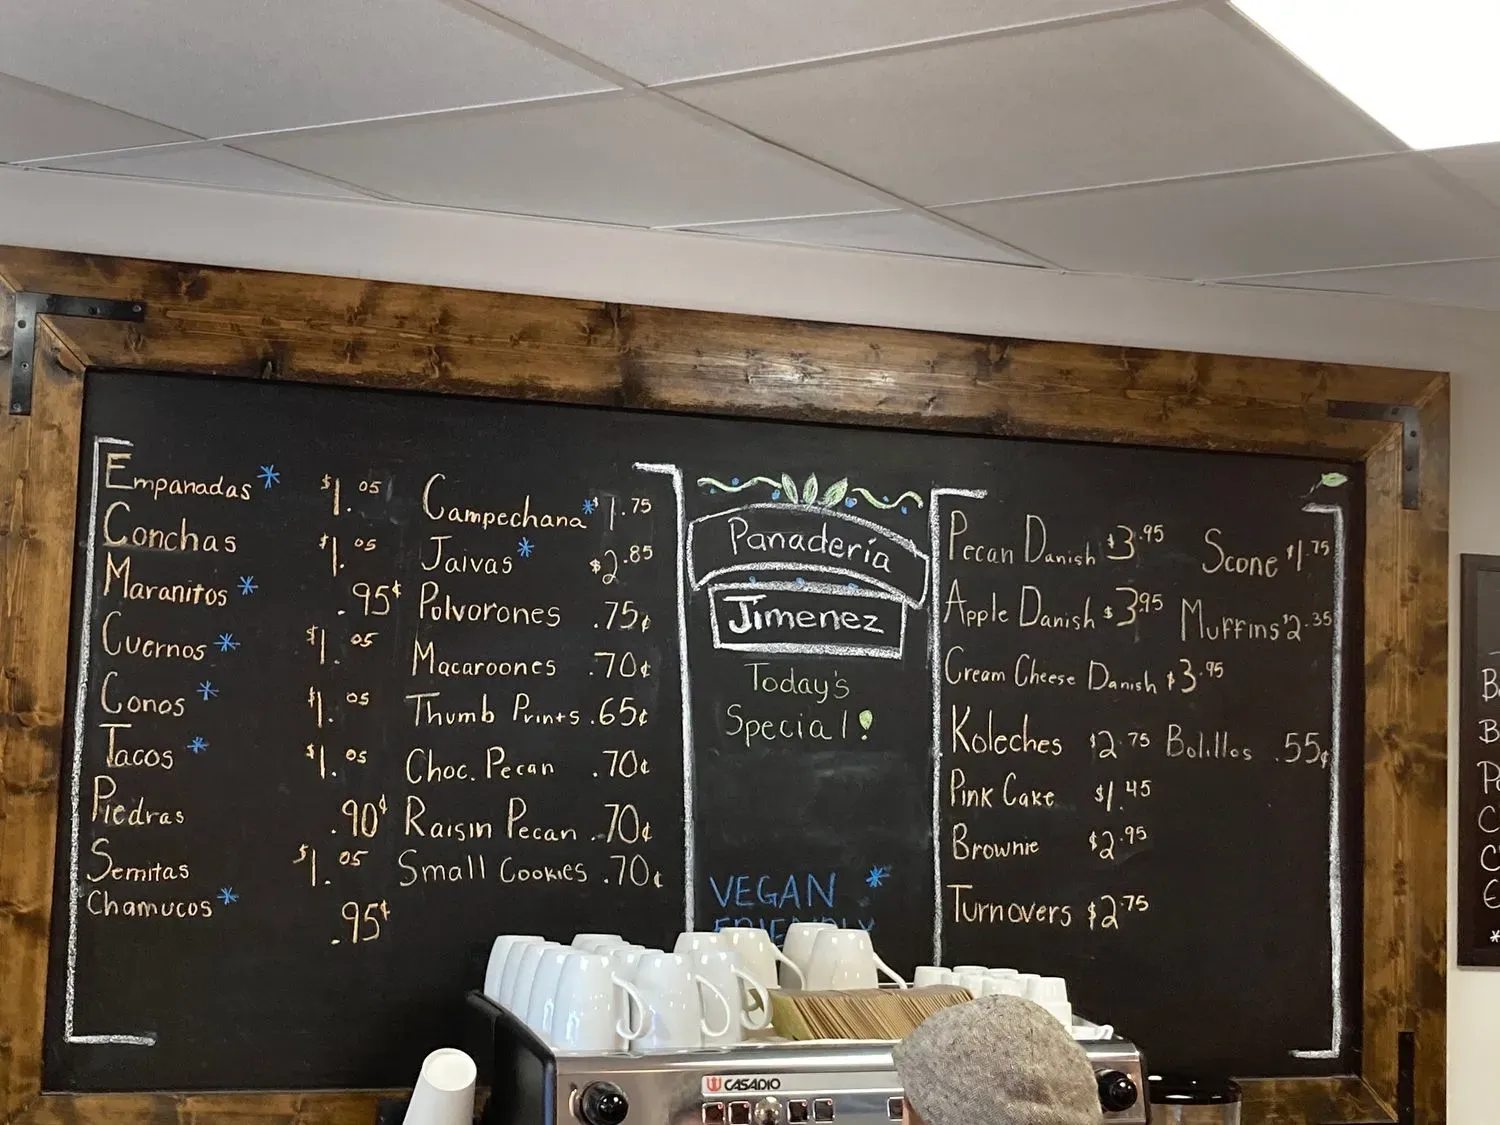 Empanadas * $1.05
Conchas $1.05
Maranitos * .95¢
Cuernos * $1.05
Conos * $1.05
Tacos * $1.05
Piedras .90¢
Semitas $1.05
Chamucos * .95¢
Campechana * $1.75
Jaivas * $2.85
Polvorones .75¢
Macaroones .70¢
Thumb Prints .65¢
Choc. Pecan .70¢
Raisin Pecan .70¢
Small Cookies .70¢
Panadería
Jimenez
Today's
Special!
VEGAN *
FRIENDLY
Pecan Danish $3.95
Apple Danish $3.95
Cream Cheese Danish $3.95
Koleches $2.75
Pink Cake $1.45
Brownie $2.95
Turnovers $2.75
Scone $1.75
Muffins $2.35
Bolillos .55¢
CASADIO